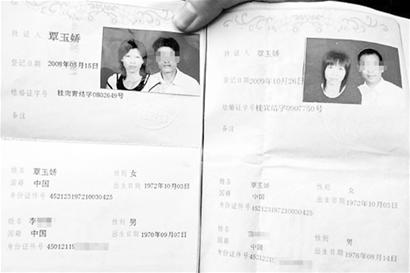 持证人 覃玉娇
登记日期 2008年05月15日
结婚证字号 桂宾结字0802649号
备注
姓名 覃玉娇 性别 女
国籍 中国 出生日期 1972年10月03日
身份证件号 452123197210030425
姓名 李 性别 男
国籍 中国 出生日期 1970年09月07日
身份证件号 45012119
持证人 覃玉娇
登记日期 2009年10月26日
结婚证字号 桂宾结字0907750号
备注
姓名 覃玉娇 性别 女
国籍 中国 出生日期 1972年10月03日
身份证件号 452123197210030425
姓名 性别 男
国籍 中国 出生日期 1976年08月14日
身份证件号 45212319